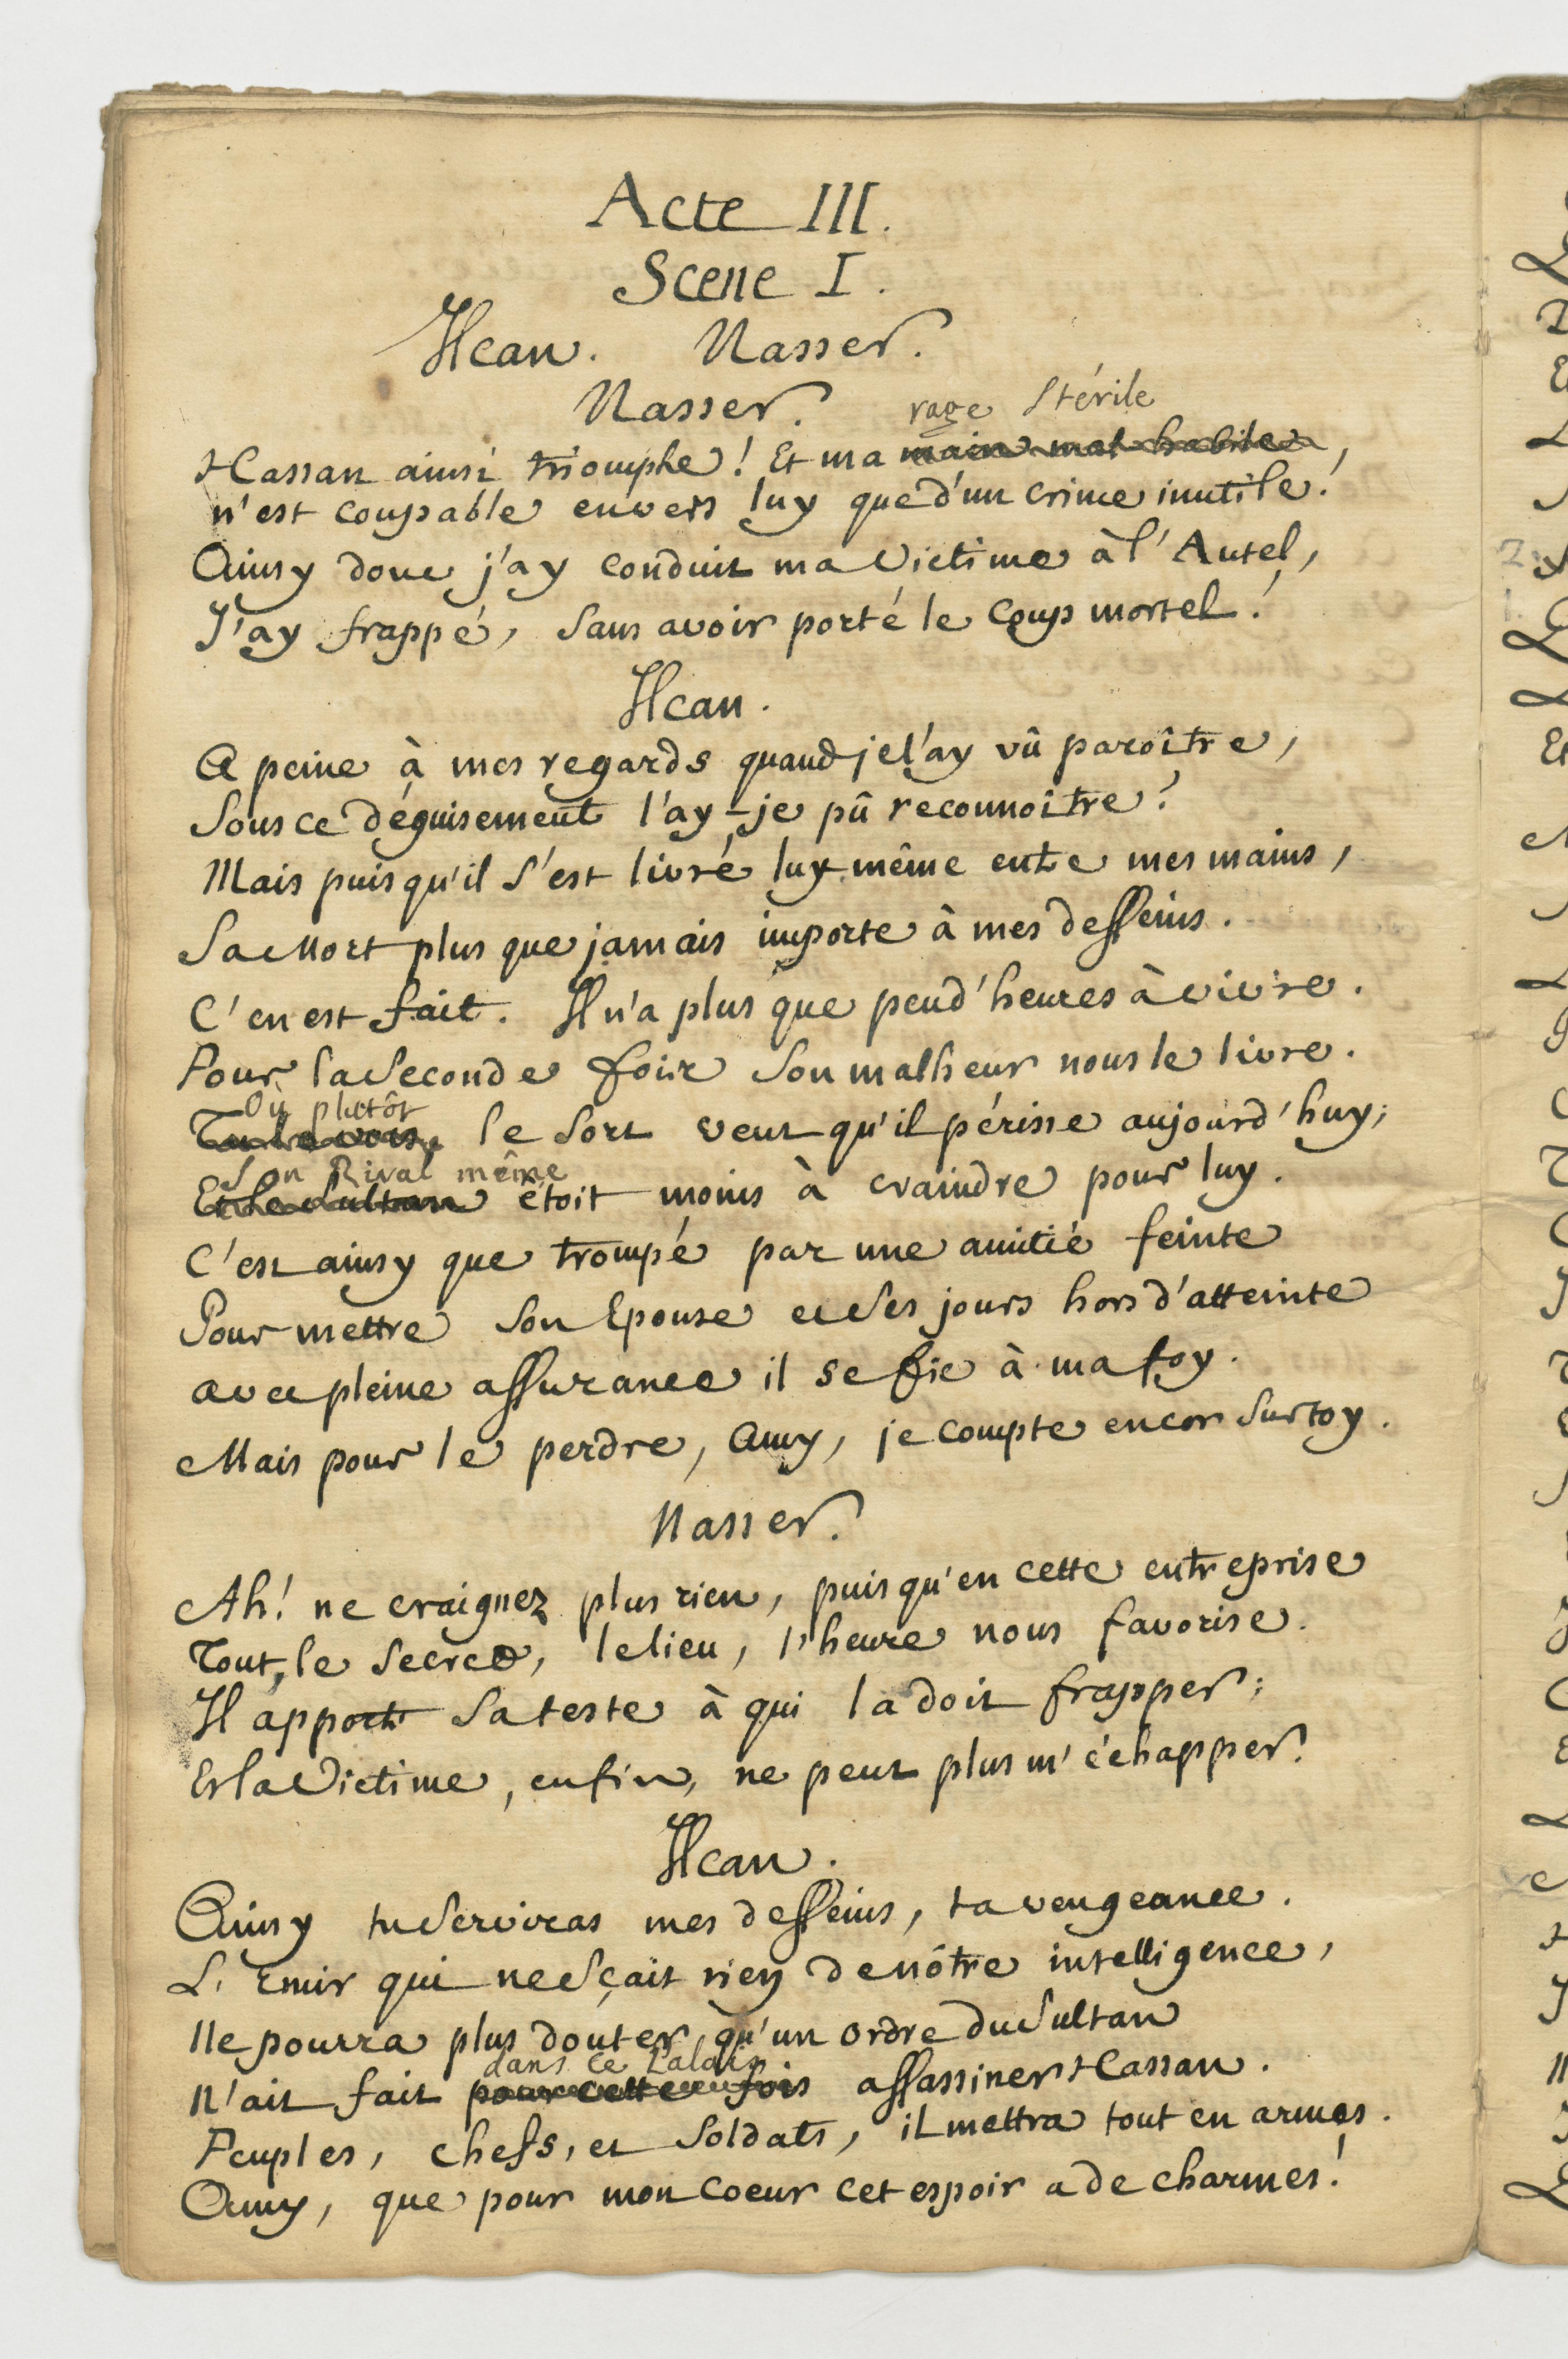 Acte III.
Scene I.
Hcan. Nasser.
Nasser.
rage stérile
Hassan ainsi triomphe! Et ma main mal habile,
n'est coupable envers luy que d'un crime inutile!
Ainsy donc j'ay conduit ma Victime à l'Autel,
J'ay frappé, sans avoir porté le Coup mortel!
Hcan.
A peine à mes regards quand je l'ay vû paroître,
Sous ce déguisement l'ay-je pû reconnoître!
Mais puis qu'il s'est livré luy-même entre mes mains,
Sa Mort plus que jamais importe à mes desseins.
C'en est fait. Il n'a plus que peu d'heures à vivre.
Pour la seconde fois son malheur nous le livre.
Ou plutôt
Tu le vois, le sort veut qu'il périsse aujourd'huy;
Son Rival même
Et le Sultan étoit moins à craindre pour luy.
C'est ainsy que trompé par une amitié feinte
Pour mettre son Epouse et ses jours hors d'atteinte
avec pleine assurance il se fie à ma foy.
Mais pour le perdre, Amy, je compte encor sur toy.
Nasser.
Ah! ne craignez plus rien, puis qu'en cette entreprise
Tout, le secret, le lieu, l'heure nous favorise.
Il apporte sa teste à qui la doit frapper;
Et la Victime, enfin, ne peut plus m'échapper!
Hcan.
Ainsy tu serviras mes desseins, ta vengeance.
L'Emir qui ne sçait rien de nôtre intelligence,
Ne pourra plus douter qu'un ordre du Sultan
dans ce Palais
N'ait fait pour cette fois assassiner Hassan.
Peuples, chefs, et soldats, il mettra tout en armes.
Amy, que pour mon coeur cet espoir a de charmes!